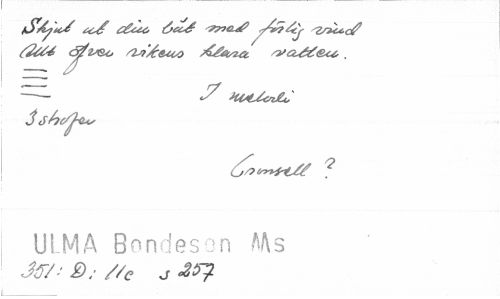 Skjut ut din båt med förlig vind
Ut öfver vikens klara vatten.
I melodi
3 strofer
Cronsell ?
ULMA Bondeson Ms
351: D: 11c s 257